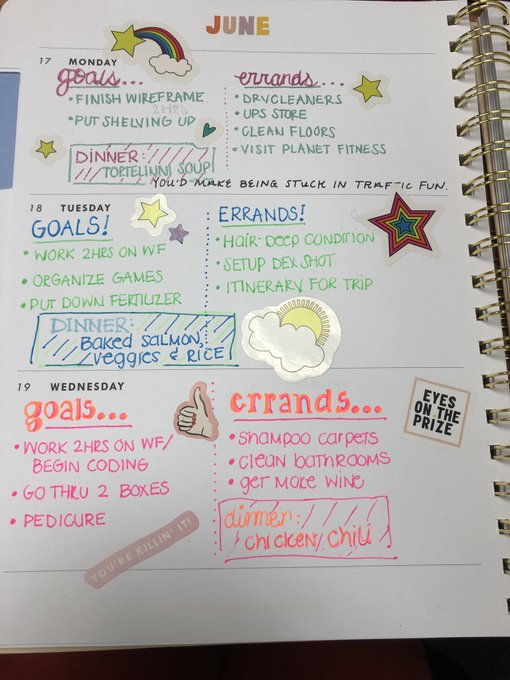 JUNE
17 MONDAY
goals...
• FINISH WIREFRAME
2HRS
• PUT SHELVING UP
errands...
• DRYCLEANERS
• UPS STORE
• CLEAN FLOORS
• VISIT PLANET FITNESS
DINNER:
TORTELINNI SOUP
YOU'D MAKE BEING STUCK IN TRAFFIC FUN.
18 TUESDAY
GOALS!
• WORK 2HRS ON WF
• ORGANIZE GAMES
• PUT DOWN FERTILIZER
ERRANDS!
• HAIR-DEEP CONDITION
• SETUP DEX SHOT
• ITINERARY FOR TRIP
DINNER:
Baked SALMON,
veggies & RICE
19 WEDNESDAY
goals...
• WORK 2HRS ON WF/
BEGIN CODING
• GO THRU 2 BOXES
• PEDICURE
errands...
• SHAMPOO CARPETS
• CLEAN BATHROOMS
• GET MORE WINE
dinner:
CHICKEN CHILI
EYES
ON THE
PRIZE
YOU'RE KILLIN' IT!